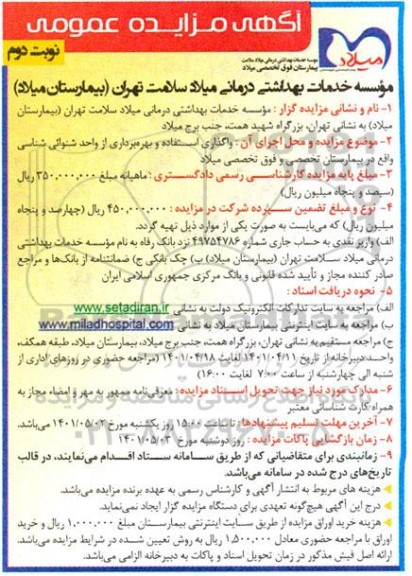 آگهی مزایده عمومی
نوبت دوم
میلاد
موسسه خدمات بهداشتی درمانی میلاد سلامت
بیمارستان فوق تخصصی میلاد
مؤسسه خدمات بهداشتی درمانی میلاد سلامت تهران (بیمارستان میلاد)
۱- نام و نشانی مزایده گزار : مؤسسه خدمات بهداشتی درمانی میلاد سلامت تهران (بیمارستان
میلاد) به نشانی تهران، بزرگراه شهید همت، جنب برج میلاد
۲- موضوع مزایده و محل اجرای آن : واگذاری استفاده و بهره‌برداری از واحد شنوائی شناسی
واقع در بیمارستان تخصصی و فوق تخصصی میلاد
۳- مبلغ پایه مزایده کارشناسی رسمی دادگستری : ماهیانه مبلغ ۳۵۰,۰۰۰,۰۰۰ ریال
(سیصد و پنجاه میلیون ریال)
۴- نوع و مبلغ تضمین سپرده شرکت در مزایده : ۴۵۰,۰۰۰,۰۰۰ ریال (چهارصد و پنجاه
میلیون ریال) که می‌بایست به صورت یکی از موارد ذیل تهیه گردد.
الف) واریز نقدی به حساب جاری شماره ۴۹۷۵۴۷۸۶ نزد بانک رفاه به نام مؤسسه خدمات بهداشتی
درمانی میلاد سلامت تهران (بیمارستان میلاد) ب) چک بانکی ج) ضمانتنامه از بانک‌ها و مراجع
صادر کننده مجاز و تأیید شده قانونی و بانک مرکزی جمهوری اسلامی ایران
۵- نحوه دریافت اسناد :
الف) مراجعه به سایت تدارکات الکترونیک دولت به نشانی www.setadiran.ir
ب) مراجعه به سایت اینترنتی بیمارستان میلاد به نشانی www.miladhospital.com
ج) مراجعه مستقیم به نشانی تهران، بزرگراه همت، جنب برج میلاد، بیمارستان میلاد، طبقه همکف،
واحد دبیرخانه از تاریخ ۱۴۰۱/۰۴/۱۱ لغایت ۱۴۰۱/۰۴/۱۸ (مراجعه حضوری در روزهای اداری از
شنبه الی چهارشنبه از ساعت ۷:۰۰ لغایت ۱۶:۰۰)
۶- مدارک مورد نیاز جهت تحویل اسناد مزایده : معرفی‌نامه ممهور به مهر و امضاء مجاز به
همراه کارت شناسائی معتبر
۷- آخرین مهلت تسلیم پیشنهادها: تا ساعت ۱۵:۰۰ روز یکشنبه مورخ ۱۴۰۱/۰۵/۰۲ می‌باشد.
۸- زمان بازگشایی پاکات مزایده : روز دوشنبه مورخ ۱۴۰۱/۰۵/۰۳
۹- زمانبندی برای متقاضیانی که از طریق سامانه ستاد اقدام می‌نمایند، در قالب
تاریخ‌های درج شده در سامانه می‌باشد.
هزینه های مربوط به انتشار آگهی و کارشناس رسمی به عهده برنده مزایده می‌باشد.
درج این آگهی هیچگونه تعهدی برای دستگاه مزایده گزار ایجاد نمی‌نماید.
هزینه خرید اوراق مزایده از طریق سایت اینترنتی بیمارستان مبلغ ۱,۰۰۰,۰۰۰ ریال و خرید
اوراق با مراجعه حضوری معادل ۱,۵۰۰,۰۰۰ ریال به روش تعیین شده در شرایط مزایده می‌باشد.
ارائه اصل فیش مذکور در زمان تحویل اسناد و پاکات به دبیرخانه الزامی می‌باشد.